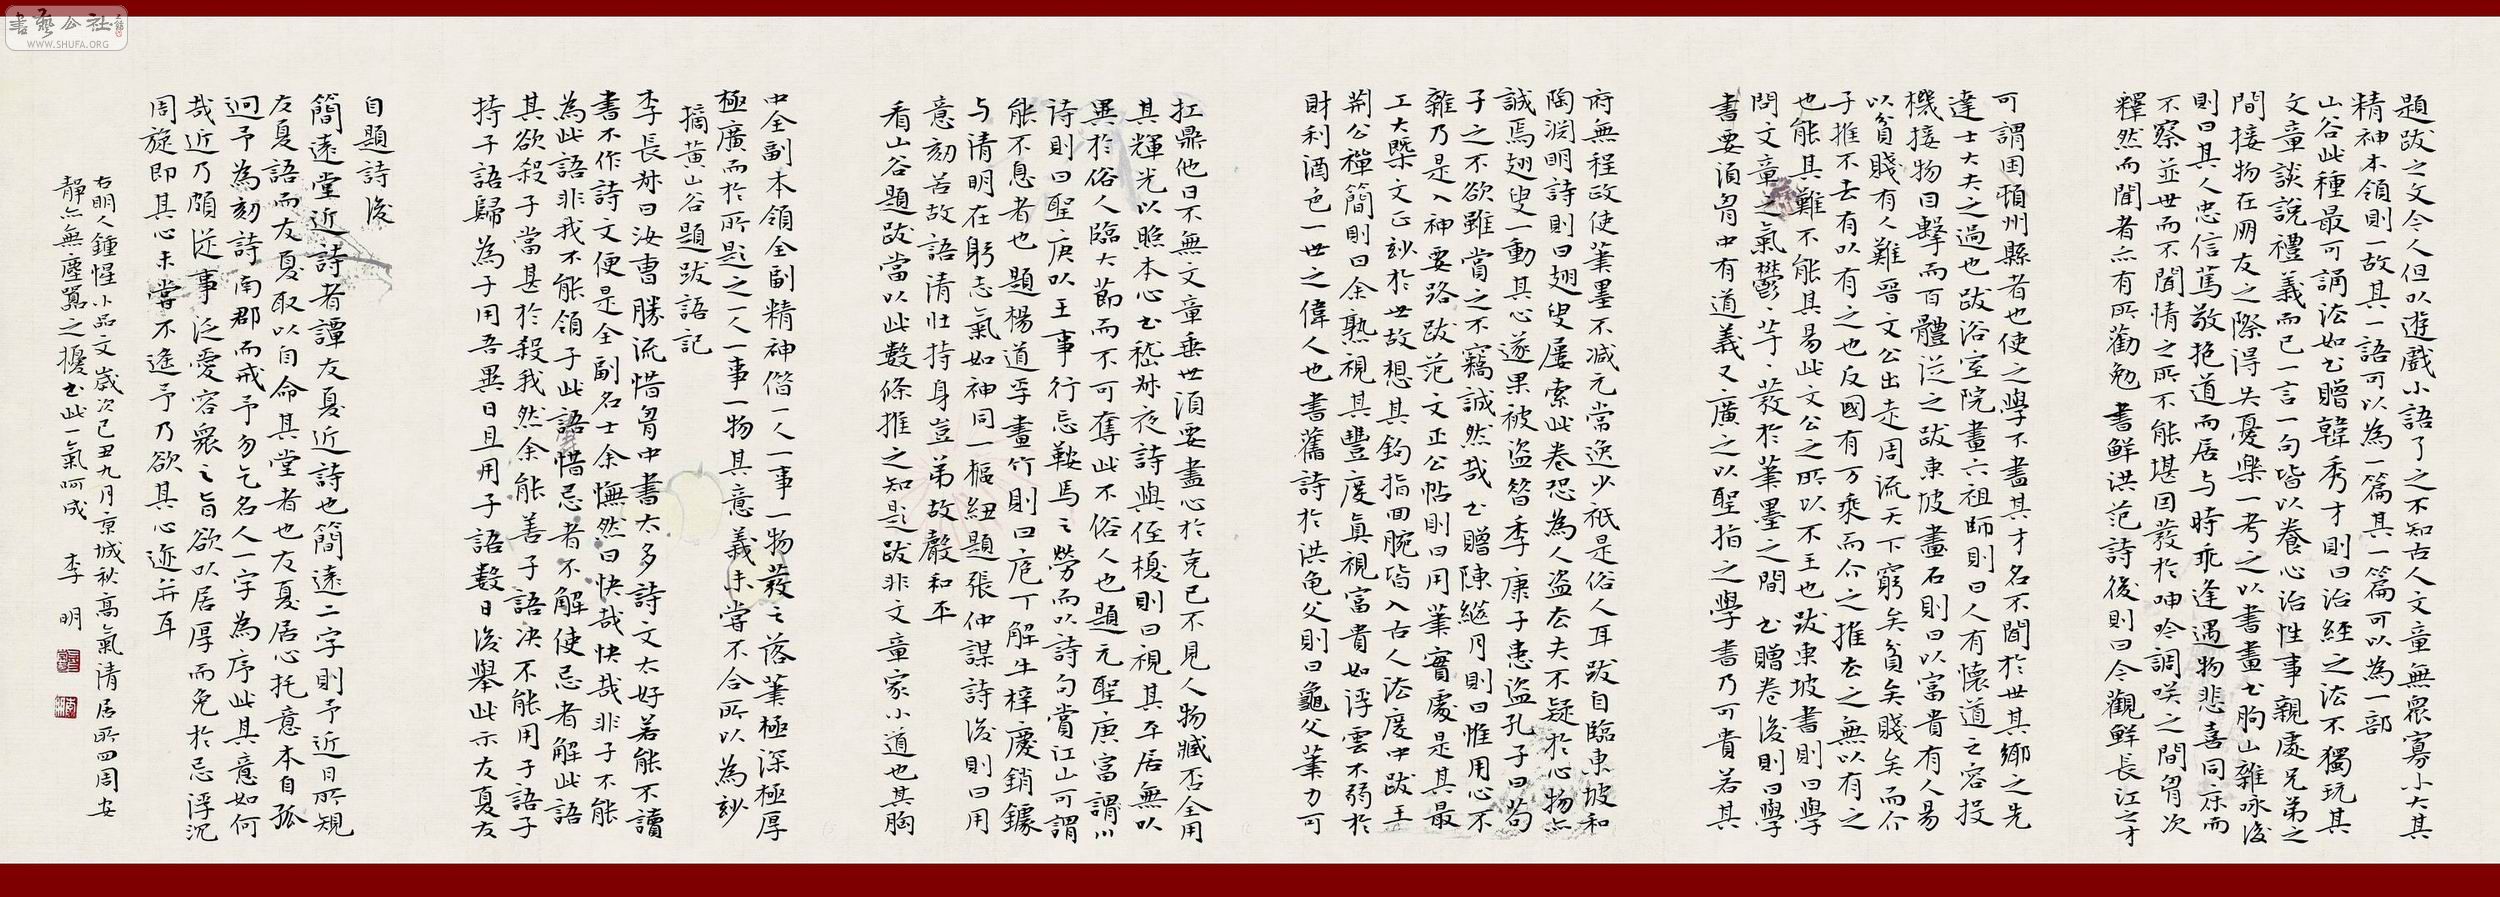 題跋之文令人但以遊戲小語了之不知古人文章無衆寡小大其
精神本領則一故其一語可以為一篇其一篇可以為一部
山谷此種最可誦法如书贈韓秀才則曰治經之法不獨玩其
文章談說禮義而已一言一句皆以養心治性事親處兄弟之
間接物在朋友之際得失憂樂一考之以書畫书朐山雜咏後
則曰其人忠信篤敬抱道而居与時乖逢遇物悲喜同床而
不察並世而不聞情之所不能堪因發於呻吟調笑之間胷次
釋然而聞者亦有所勸勉 書鮮洪范詩後則曰今觀鮮長江之才
可謂困頓州縣者也使之學不盡其才名不聞於世其鄉之先
達士大夫之過也跋浴室院畫六祖師則曰人有懷道之容投
機接物曰擊而百體從之跋東坡畫石則曰以富貴有人易
以貧賤有人難晉文公出走周流天下窮矣貧矣賤矣而介
子推不去有以有之也反國有万乘而介之推去之無以有之
也能其難不能其易此文公之所以不王也跋東坡書則曰學
問文章之氣鬱〻芊〻發於筆墨之間 书贈卷後則曰學
書要湏胷中有道義又廣之以聖指之學書乃可貴若其
府無程政使筆墨不減元常逸少祇是俗人耳跋自臨東坡和
陶淵明詩則曰翅叟屢索此卷恐為人盗去夫不疑於心物亦
誠焉翅叟一動其心遂果被盗昝季康子患盗孔子曰苟
子之不欲雖賞之不竊誠然哉 书贈陳繼月則曰惟用心不
雜乃是入神要路跋范文正公帖則曰用筆實處是其最
工大槩文正玅於世故想其鈎指回腕皆入古人法度中跋王
荊公禪簡則曰余熟視其豐度真視富貴如浮雲不溺於
財利酒色一世之偉人也書舊詩於洪龟父則曰龜父筆力可
扛鼎他日不無文章垂世湏要盡心於克己不見人物臧否全用
其輝光以照本心书嵇叔夜詩與侄榎則曰視其平居無以
異於俗人臨大節而不可奪此不俗人也題元聖庚富謂川
诗則曰聖庚以王事行忘鞍馬之勞而以詩句賞江山可謂
能不息者也題楊道孚畫竹則曰庖丁解牛梓慶銷鐻
与清明在躬志氣如神同一樞紐題張仲謀詩後則曰用
意刻苦故語清壯持身豈弟故聲和平
看山谷題跋當以此數條推之知題跋非文章家小道也其胸
中全副本領全副精神偕一人一事一物發之落筆極深極厚
極廣而於所題之一人一事一物其意義未嘗不合所以為玅
摘黄山谷題跋語記
李長叔曰汝曹勝流惜胷中書太多詩文太好若能不讀
書不作詩文便是全副名士余憮然曰快哉快哉非子不能
為此語非我不能領子此語惜忌者不解使忌者解此語
其欲殺子當甚於殺我然余能善子語決不能用子語子
持子語歸為子用吾異日且用子語數日後舉此示友夏友
自題詩後
簡遠堂近詩者譚友夏近詩也簡遠二字則予近日所規
友夏語而友夏取以自命其堂者也友夏居心托意本自孤
迥予為刻詩南郡而戒予勿乞名人一字為序此其意如何
哉近乃頗從事泛愛容衆之旨欲以居厚而免於忌浮沉
周旋即其心未嘗不遙予乃欲其心迹并耳
右明人鍾惺小品文歲次己丑九月京城秋高氣清居所四周安
靜亦無塵嚣之擾书此一氣呵成 李明
書藝公社
WWW.SHUFA.ORG